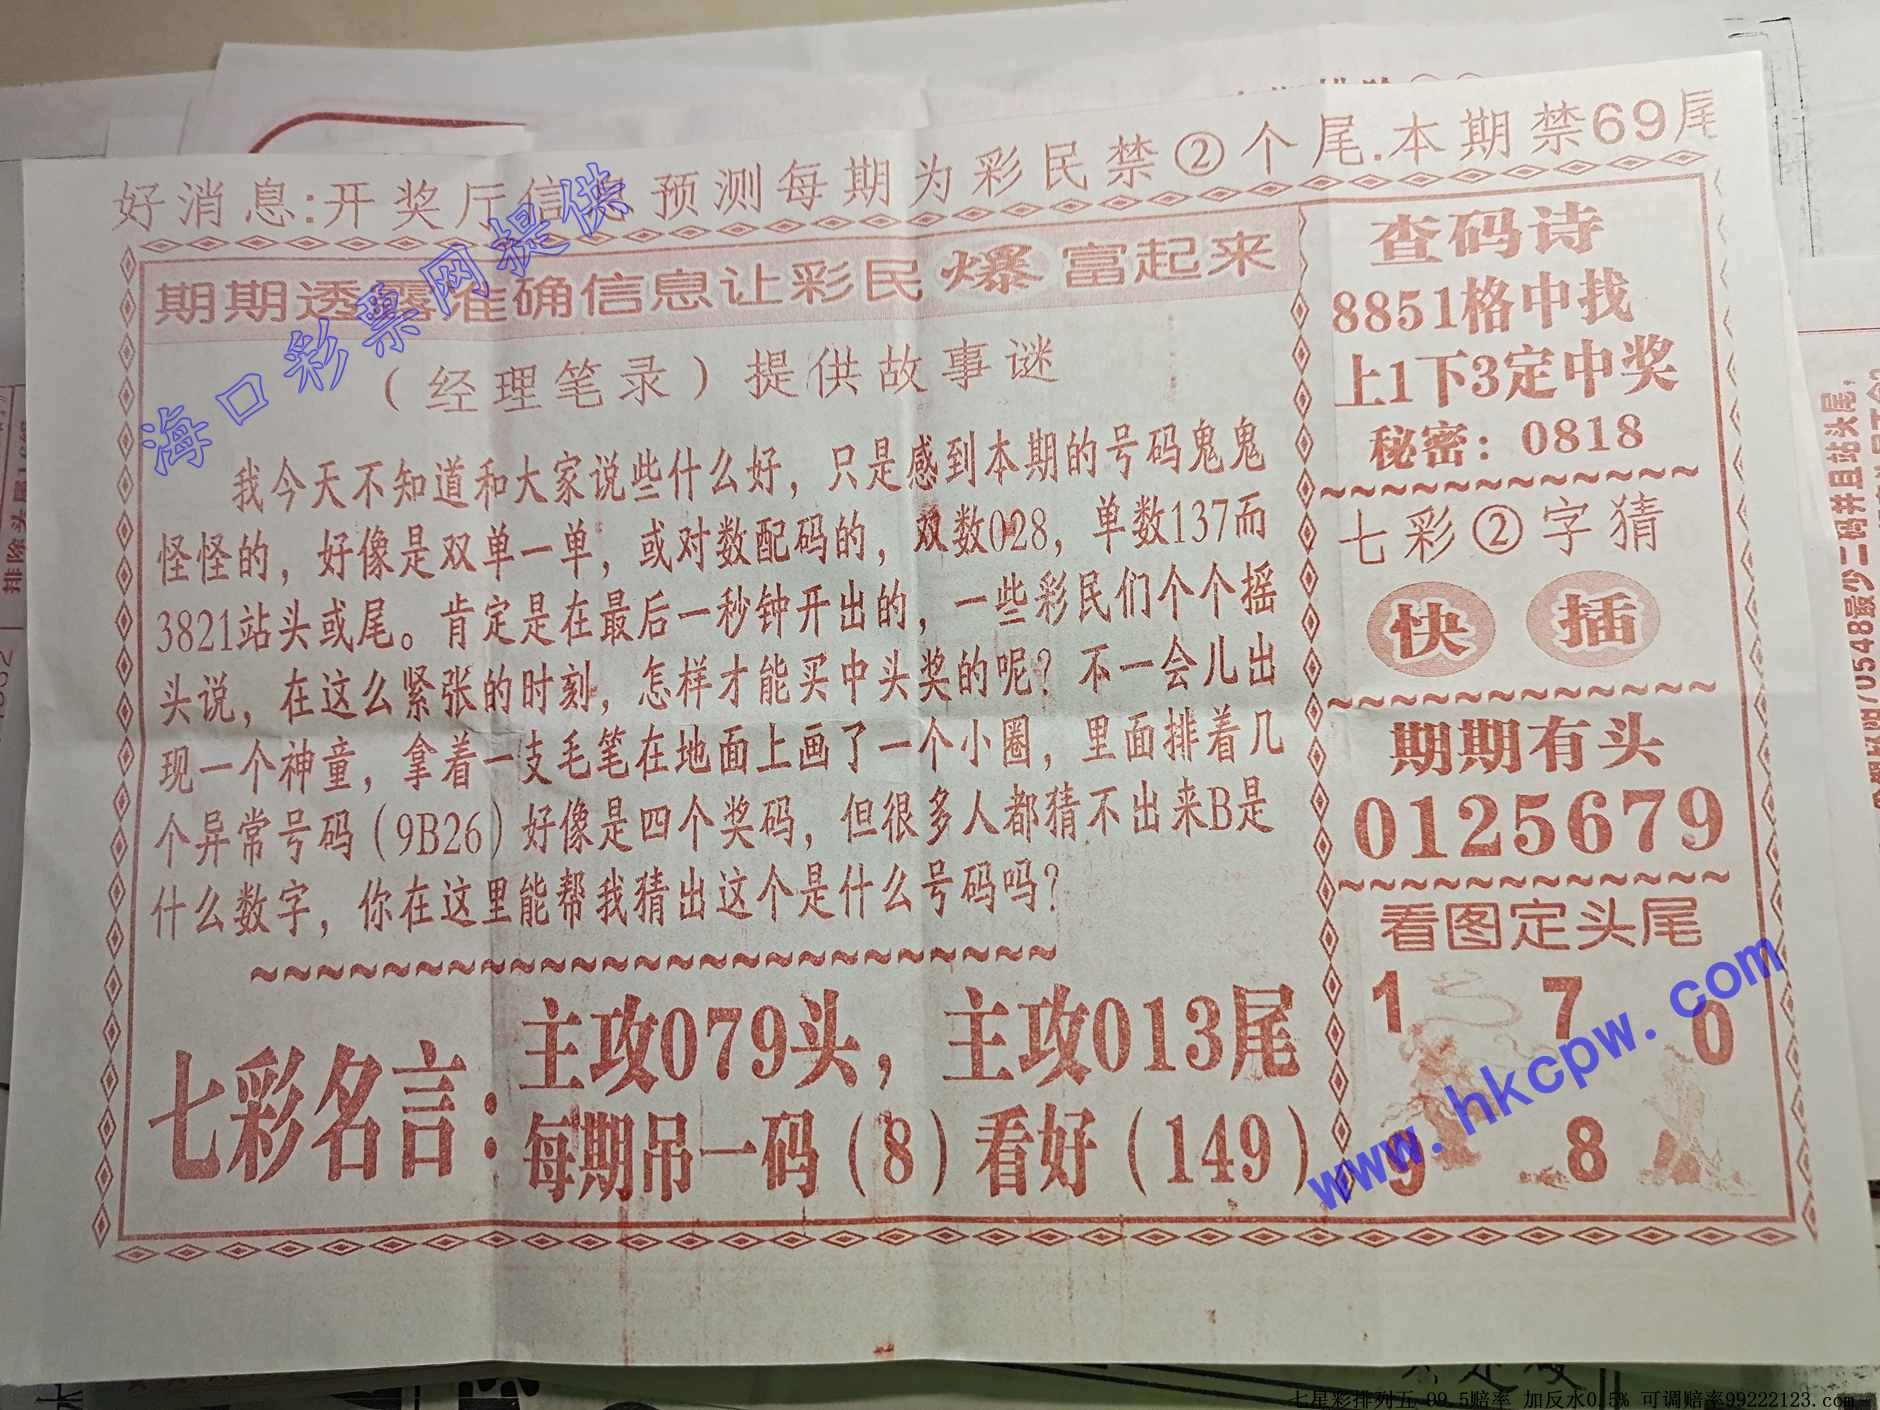 好消息:开奖厅信息预测每期为彩民禁②个尾.本期禁69尾
期期透露准确信息让彩民爆富起来
（经理笔录）提供故事谜
我今天不知道和大家说些什么好，只是感到本期的号码鬼鬼
怪怪的，好像是双单一单，或对数配码的，双数028，单数137而
3821站头或尾。肯定是在最后一秒钟开出的，一些彩民们个个摇
头说，在这么紧张的时刻，怎样才能买中头奖的呢？不一会儿出
现一个神童，拿着一支毛笔在地面上画了一个小圈，里面排着几
个异常号码（9B26）好像是四个奖码，但很多人都猜不出来B是
什么数字，你在这里能帮我猜出这个是什么号码吗？
七彩名言：
主攻079头，主攻013尾
每期吊一码（8）看好（149）
查码诗
8851格中找
上1下3定中奖
秘密：0818
七彩②字猜
快 插
期期有头
0125679
看图定头尾
1 7 0
9 8
海口彩票网提供
www.hkcpw.com
排除头尾
二码并且站头尾，
七星彩排列五 99.5赔率 加反水0.5% 可调赔率99222123.com